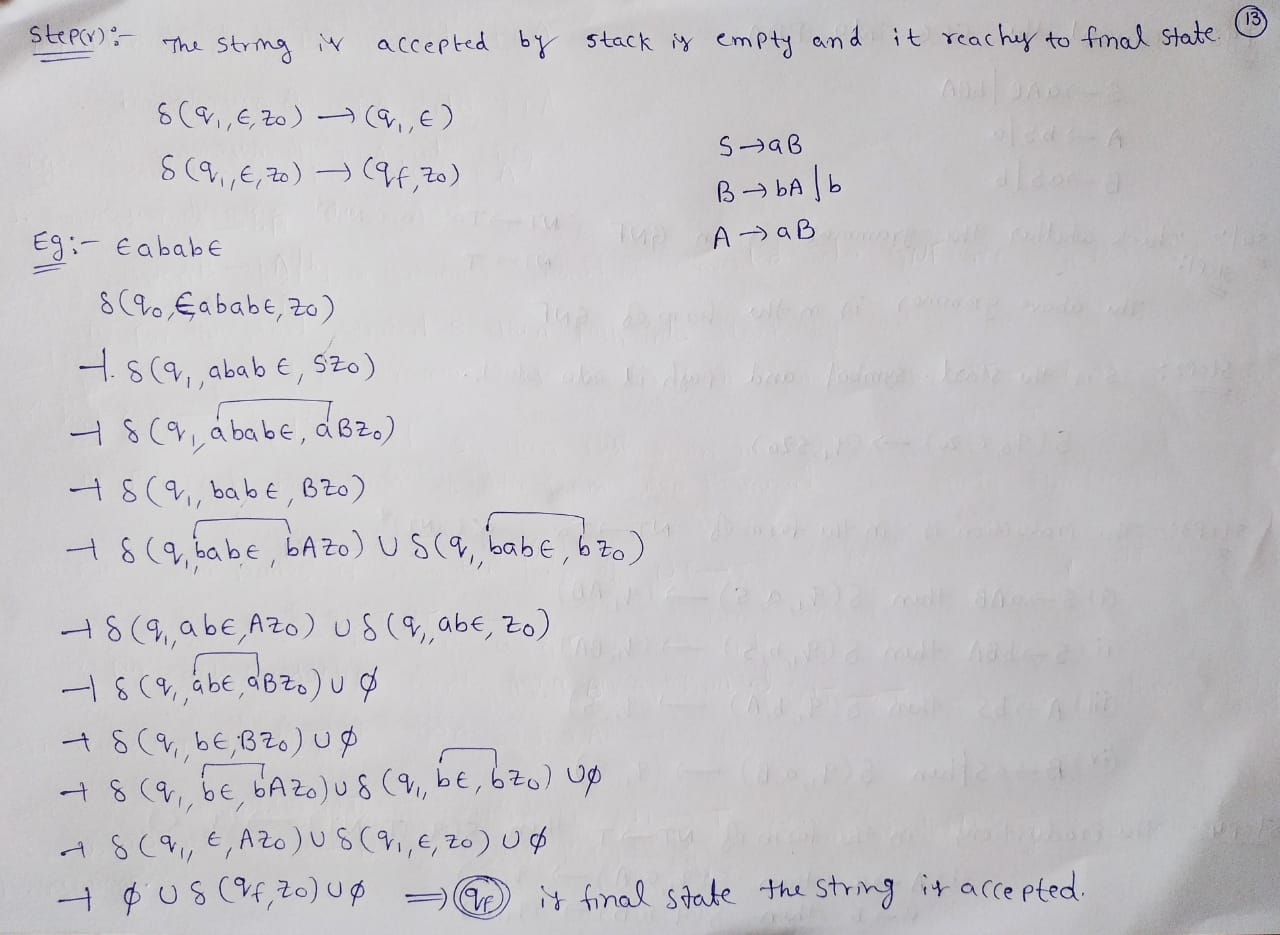 Step(v):- The string is accepted by stack is empty and it reaches to final state. 13
δ(q₁, ϵ, z₀) → (q₁, ϵ)
δ(q₁, ϵ, z₀) → (qf, z₀)
S → aB
B → bA | b
A → aB
Eg:- ϵababϵ
δ(q₀, ϵababϵ, z₀)
⊣ δ(q₁, ababϵ, Sz₀)
⊣ δ(q₁, ababϵ, aBz₀)
⊣ δ(q₁, babϵ, Bz₀)
⊣ δ(q₁, babϵ, bAz₀) ∪ δ(q₁, babϵ, bz₀)
⊣ δ(q₁, abϵ, Az₀) ∪ δ(q₁, abϵ, z₀)
⊣ δ(q₁, abϵ, aBz₀) ∪ ϕ
⊣ δ(q₁, bϵ, Bz₀) ∪ ϕ
⊣ δ(q₁, bϵ, bAz₀) ∪ δ(q₁, bϵ, bz₀) ∪ ϕ
⊣ δ(q₁, ϵ, Az₀) ∪ δ(q₁, ϵ, z₀) ∪ ϕ
⊣ ϕ ∪ δ(qf, z₀) ∪ ϕ ⇒ qf is final state the string is accepted.